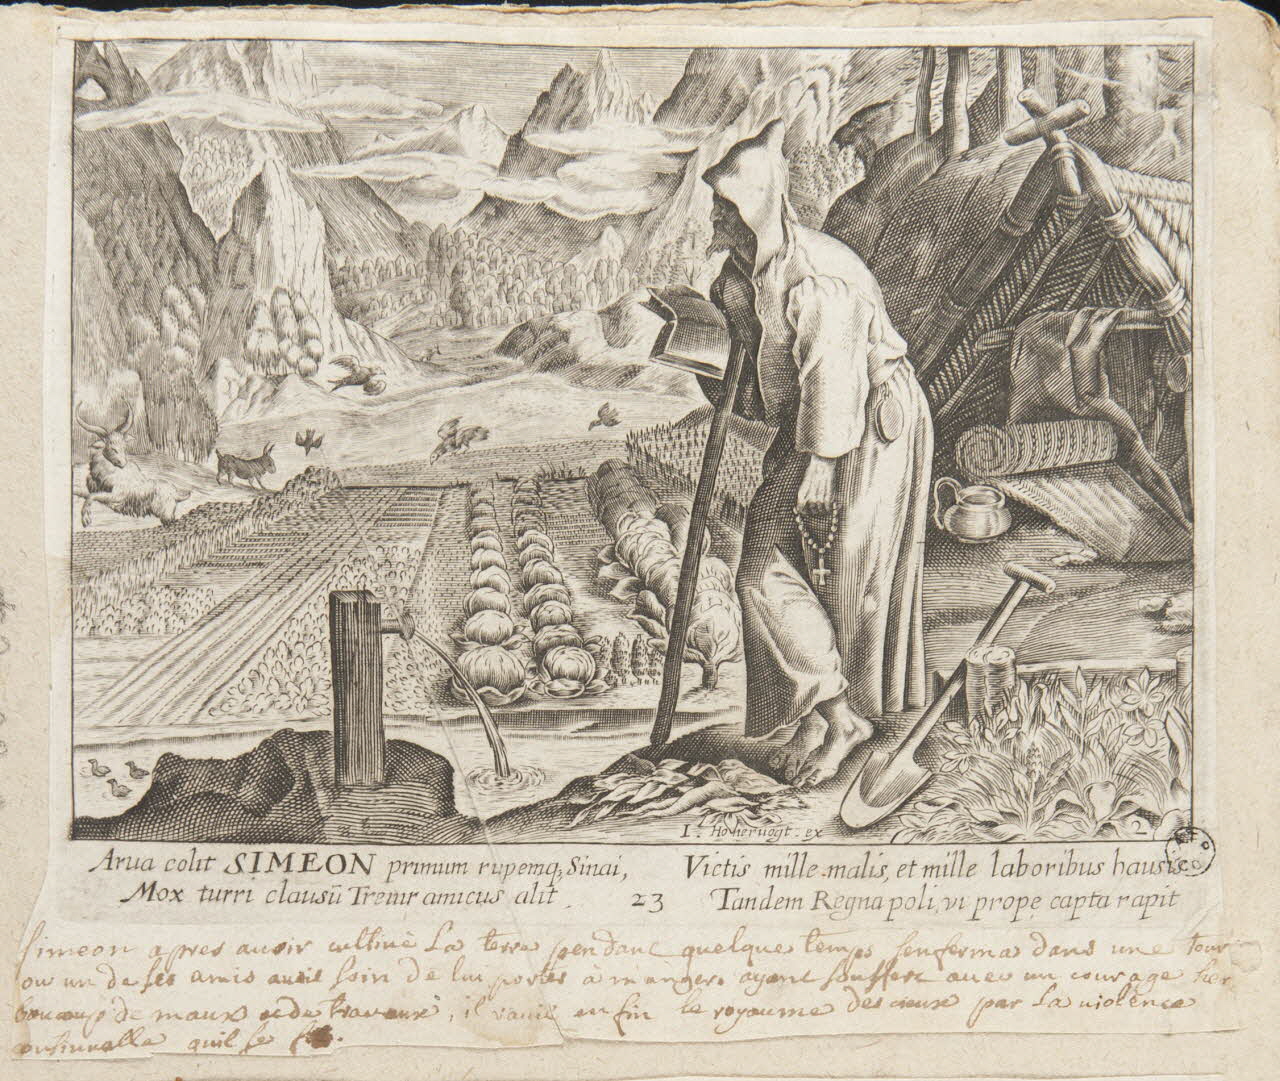 I. Hovieruogt. ex
2
Arua colit SIMEON primum rupemq; Sinai,
Mox turri clausū Treuir amicus alit.
23
Victis mille malis, et mille laboribus hausis
Tandem Regna poli, vi prope capta rapit
Simeon apres avoir cultivé La terre pendant quelque temps senferma dans une tour
ou un de ses amis avoit soin de luy porter à manger. ayant souffert avec un courage her
beaucoup de maux et de travaux, il ravit enfin le royaume des cieux par La violence
continuelle quil se fit.